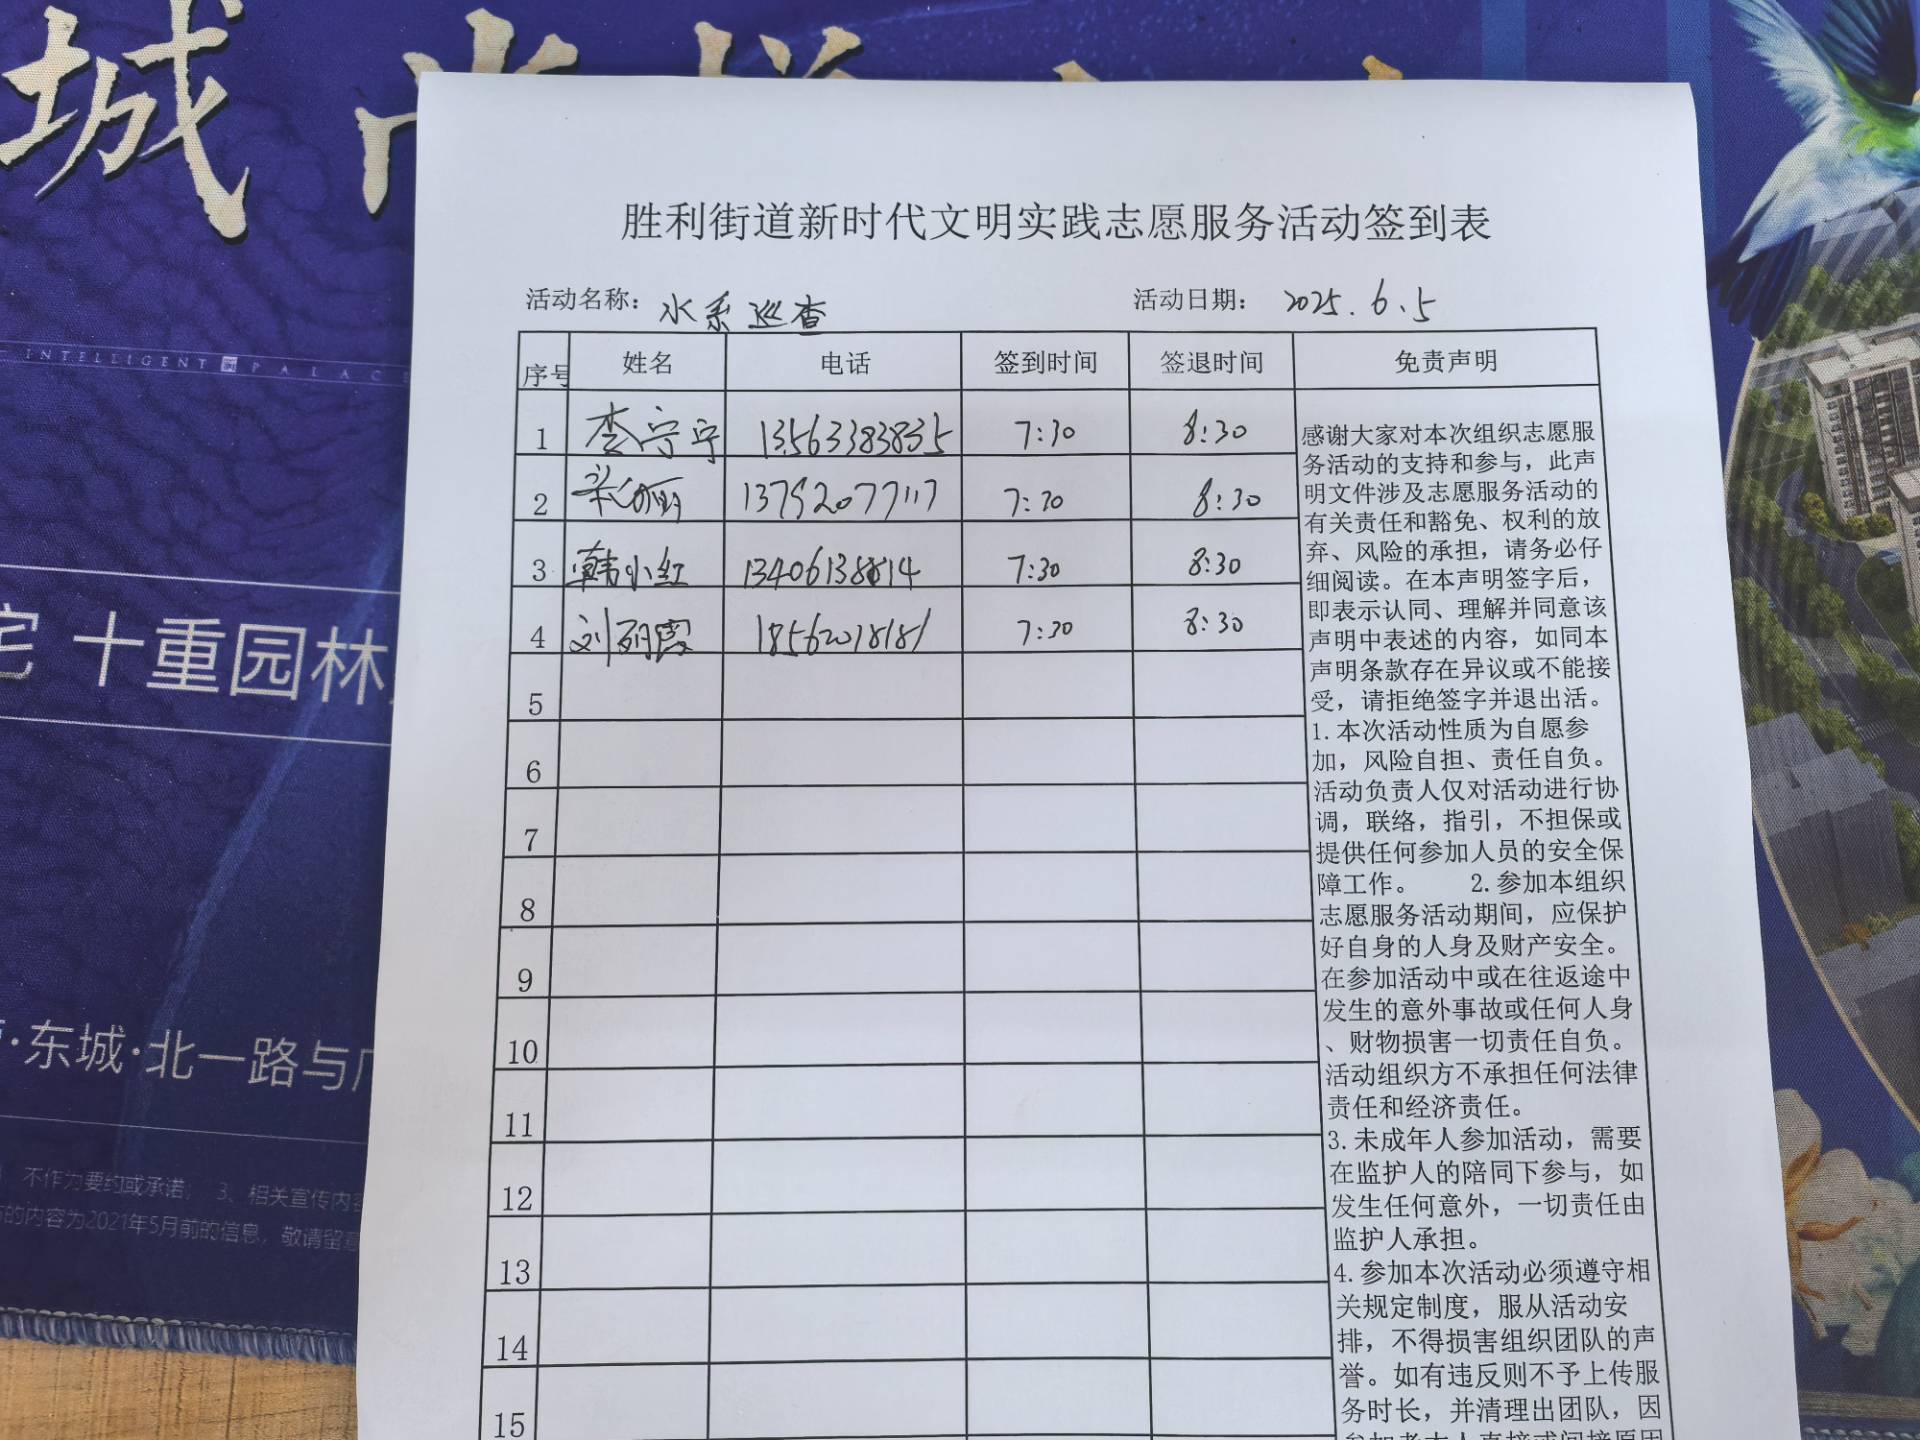 城
INTELLIGENT PALACE
宅 十重园林
·东城·北一路与广
不作为要约或承诺; 3、相关宣传内容
的内容为2021年5月前的信息，敬请留意
胜利街道新时代文明实践志愿服务活动签到表
活动名称: 水系巡查 活动日期: 2025.6.5
序号 姓名 电话 签到时间 签退时间 免责声明
1 李宁宁 13563383835 7:30 8:30
2 13792077117 7:30 8:30
3 韩小红 13406138814 7:30 8:30
4 刘丽霞 18562018181 7:30 8:30
5
6
7
8
9
10
11
12
13
14
15
感谢大家对本次组织志愿服
务活动的支持和参与，此声
明文件涉及志愿服务活动的
有关责任和豁免、权利的放
弃、风险的承担，请务必仔
细阅读。在本声明签字后，
即表示认同、理解并同意该
声明中表述的内容，如同本
声明条款存在异议或不能接
受，请拒绝签字并退出活。
1.本次活动性质为自愿参
加，风险自担、责任自负。
活动负责人仅对活动进行协
调，联络，指引，不担保或
提供任何参加人员的安全保
障工作。 2.参加本组织
志愿服务活动期间，应保护
好自身的人身及财产安全。
在参加活动中或在往返途中
发生的意外事故或任何人身
、财物损害一切责任自负。
活动组织方不承担任何法律
责任和经济责任。
3.未成年人参加活动，需要
在监护人的陪同下参与，如
发生任何意外，一切责任由
监护人承担。
4.参加本次活动必须遵守相
关规定制度，服从活动安
排，不得损害组织团队的声
誉。如有违反则不予上传服
务时长，并清理出团队，因